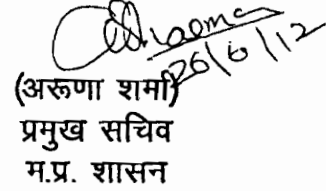 Sharma
26/6/12
(अरूणा शर्मा)
प्रमुख सचिव
म.प्र. शासन